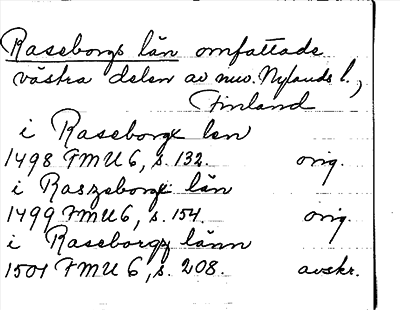 Raseborgs län omfattade
västra delen av nuv. Nylands l.,
Finland
i Raseborgx len
1498 FMU 6, s. 132. orig.
i Raszeborgx län
1499 FMU 6, s. 154. orig.
i Raseborgx länn
1501 FMU 6, s. 208. avskr.